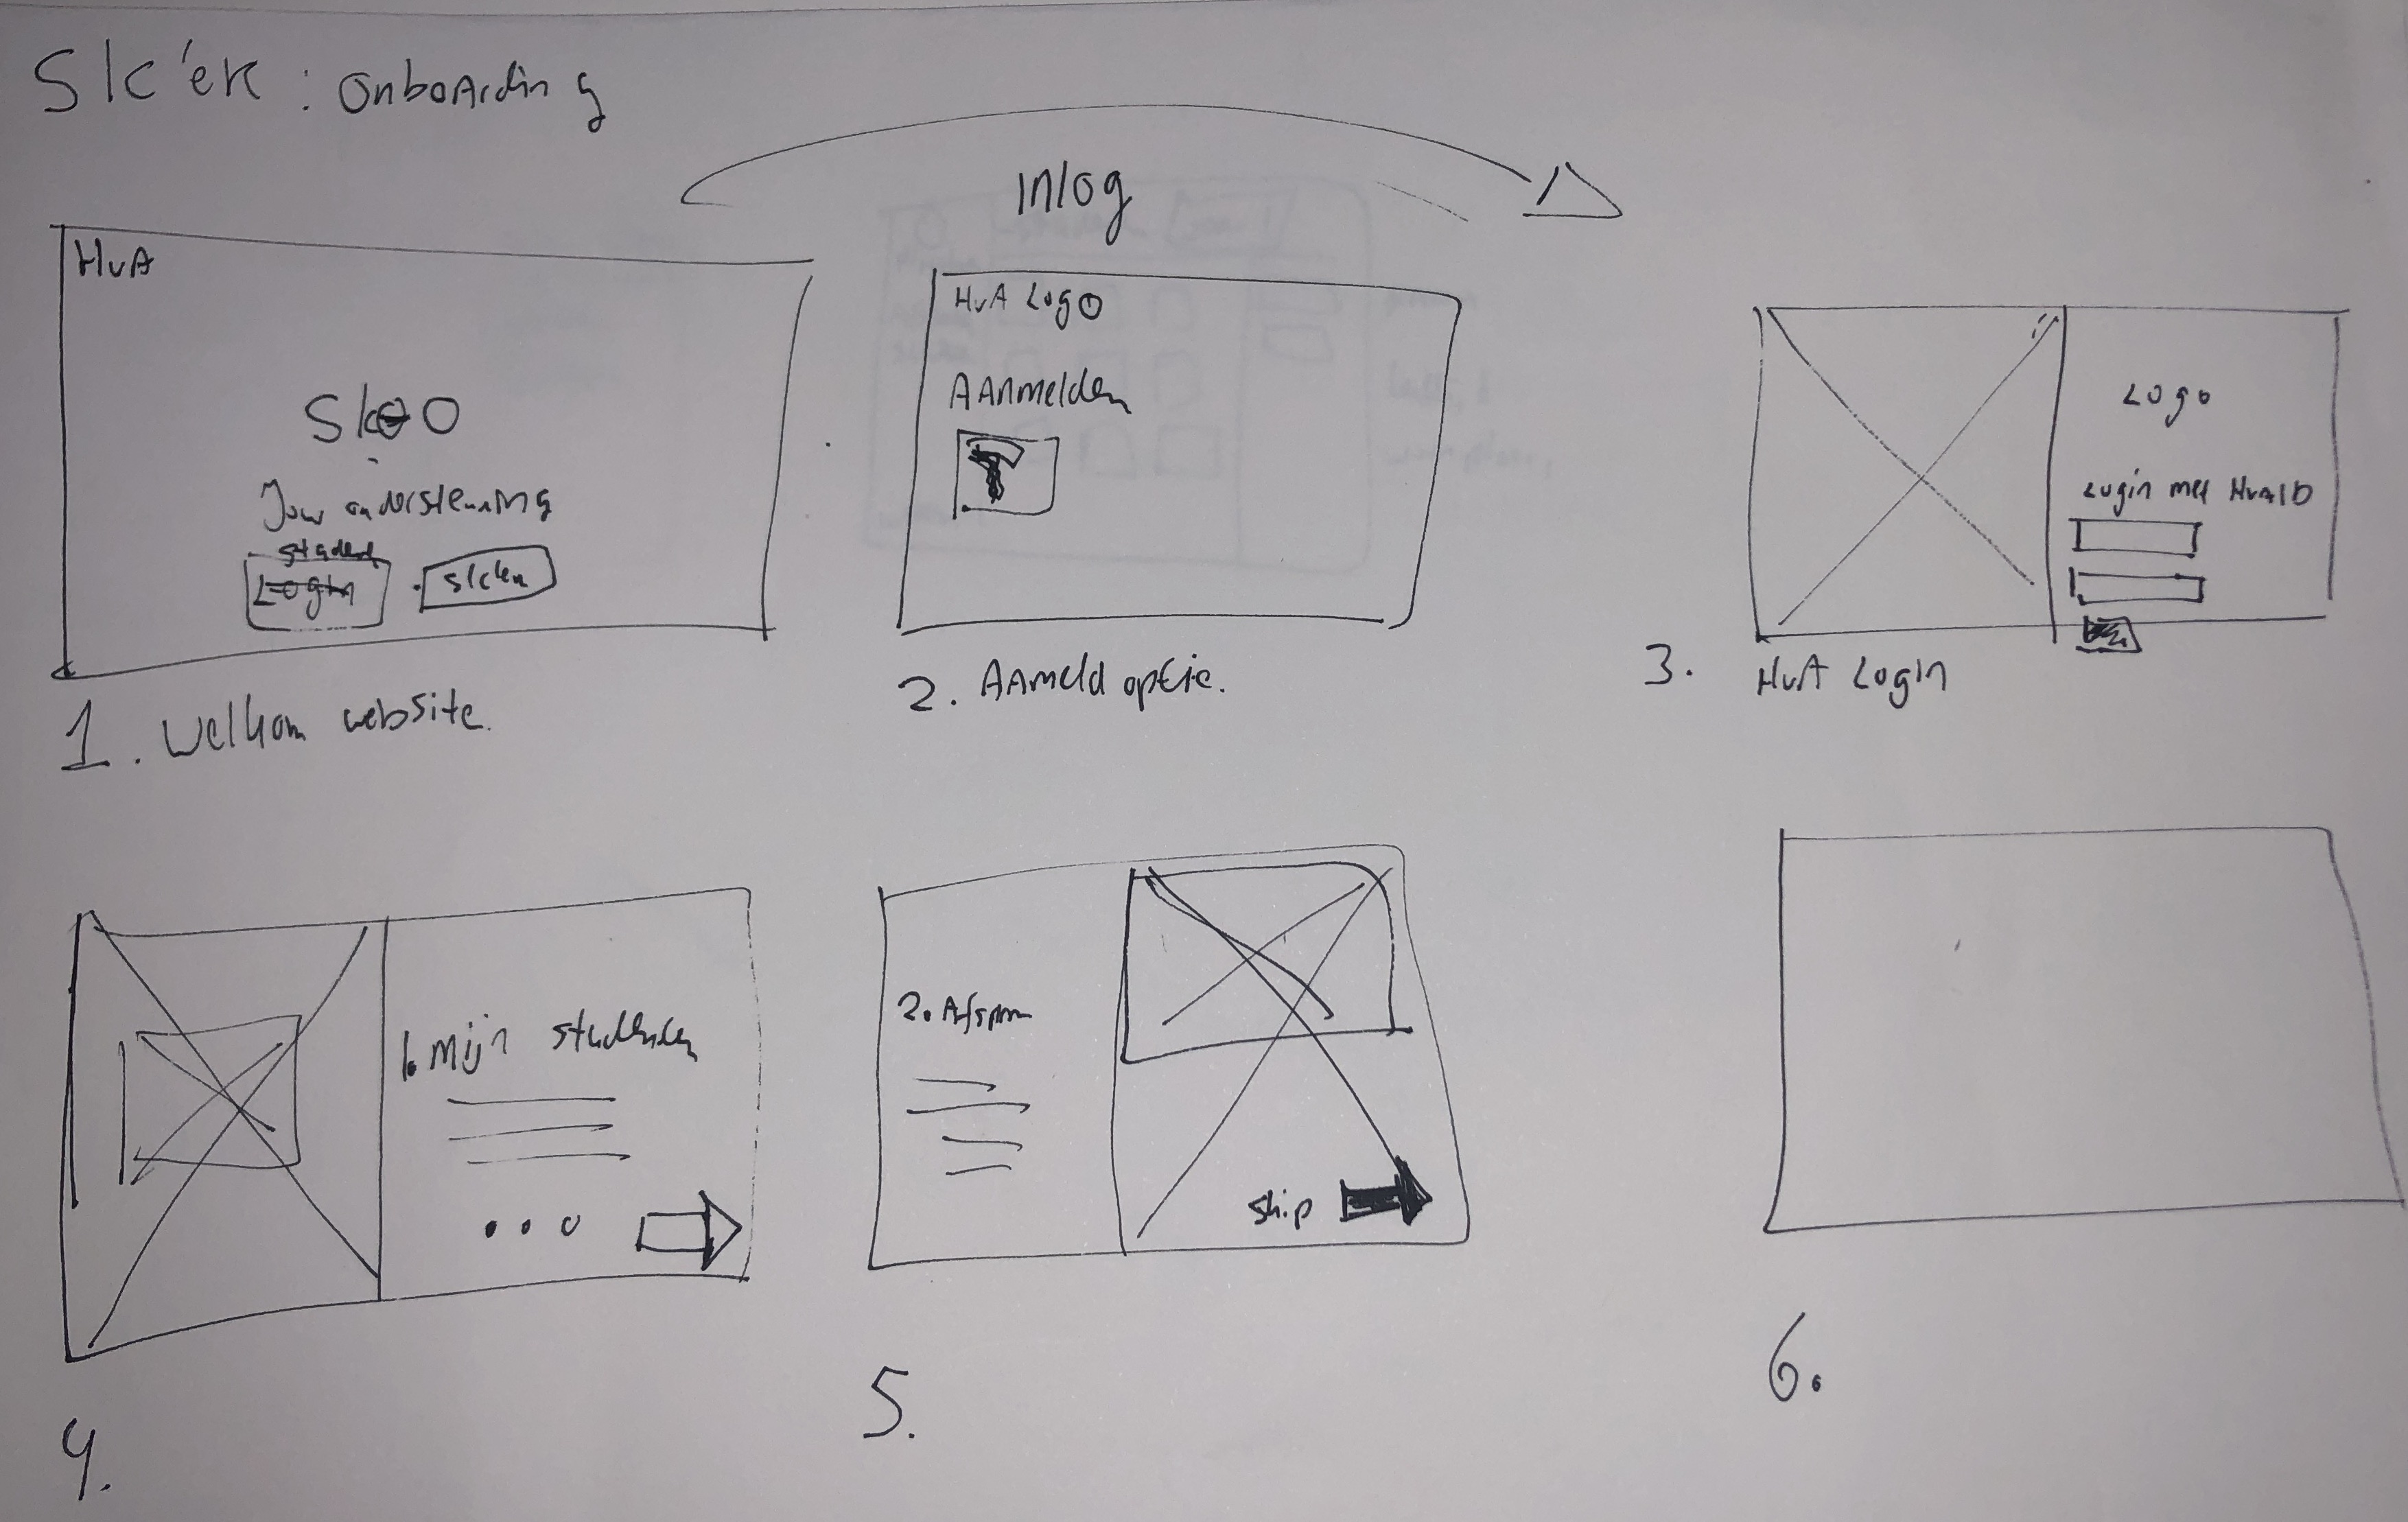 Slc'er : Onboarding
Inlog
HvA
Jouw ondersteuning
student
Login
Slc'er
1. Welkom website.
HvA Logo
Aanmelden
2. Aanmeld optie.
Logo
Login met HvAID
3. HvA Login
1. Mijn studenten
4.
2. Afspraa
skip
5.
6.